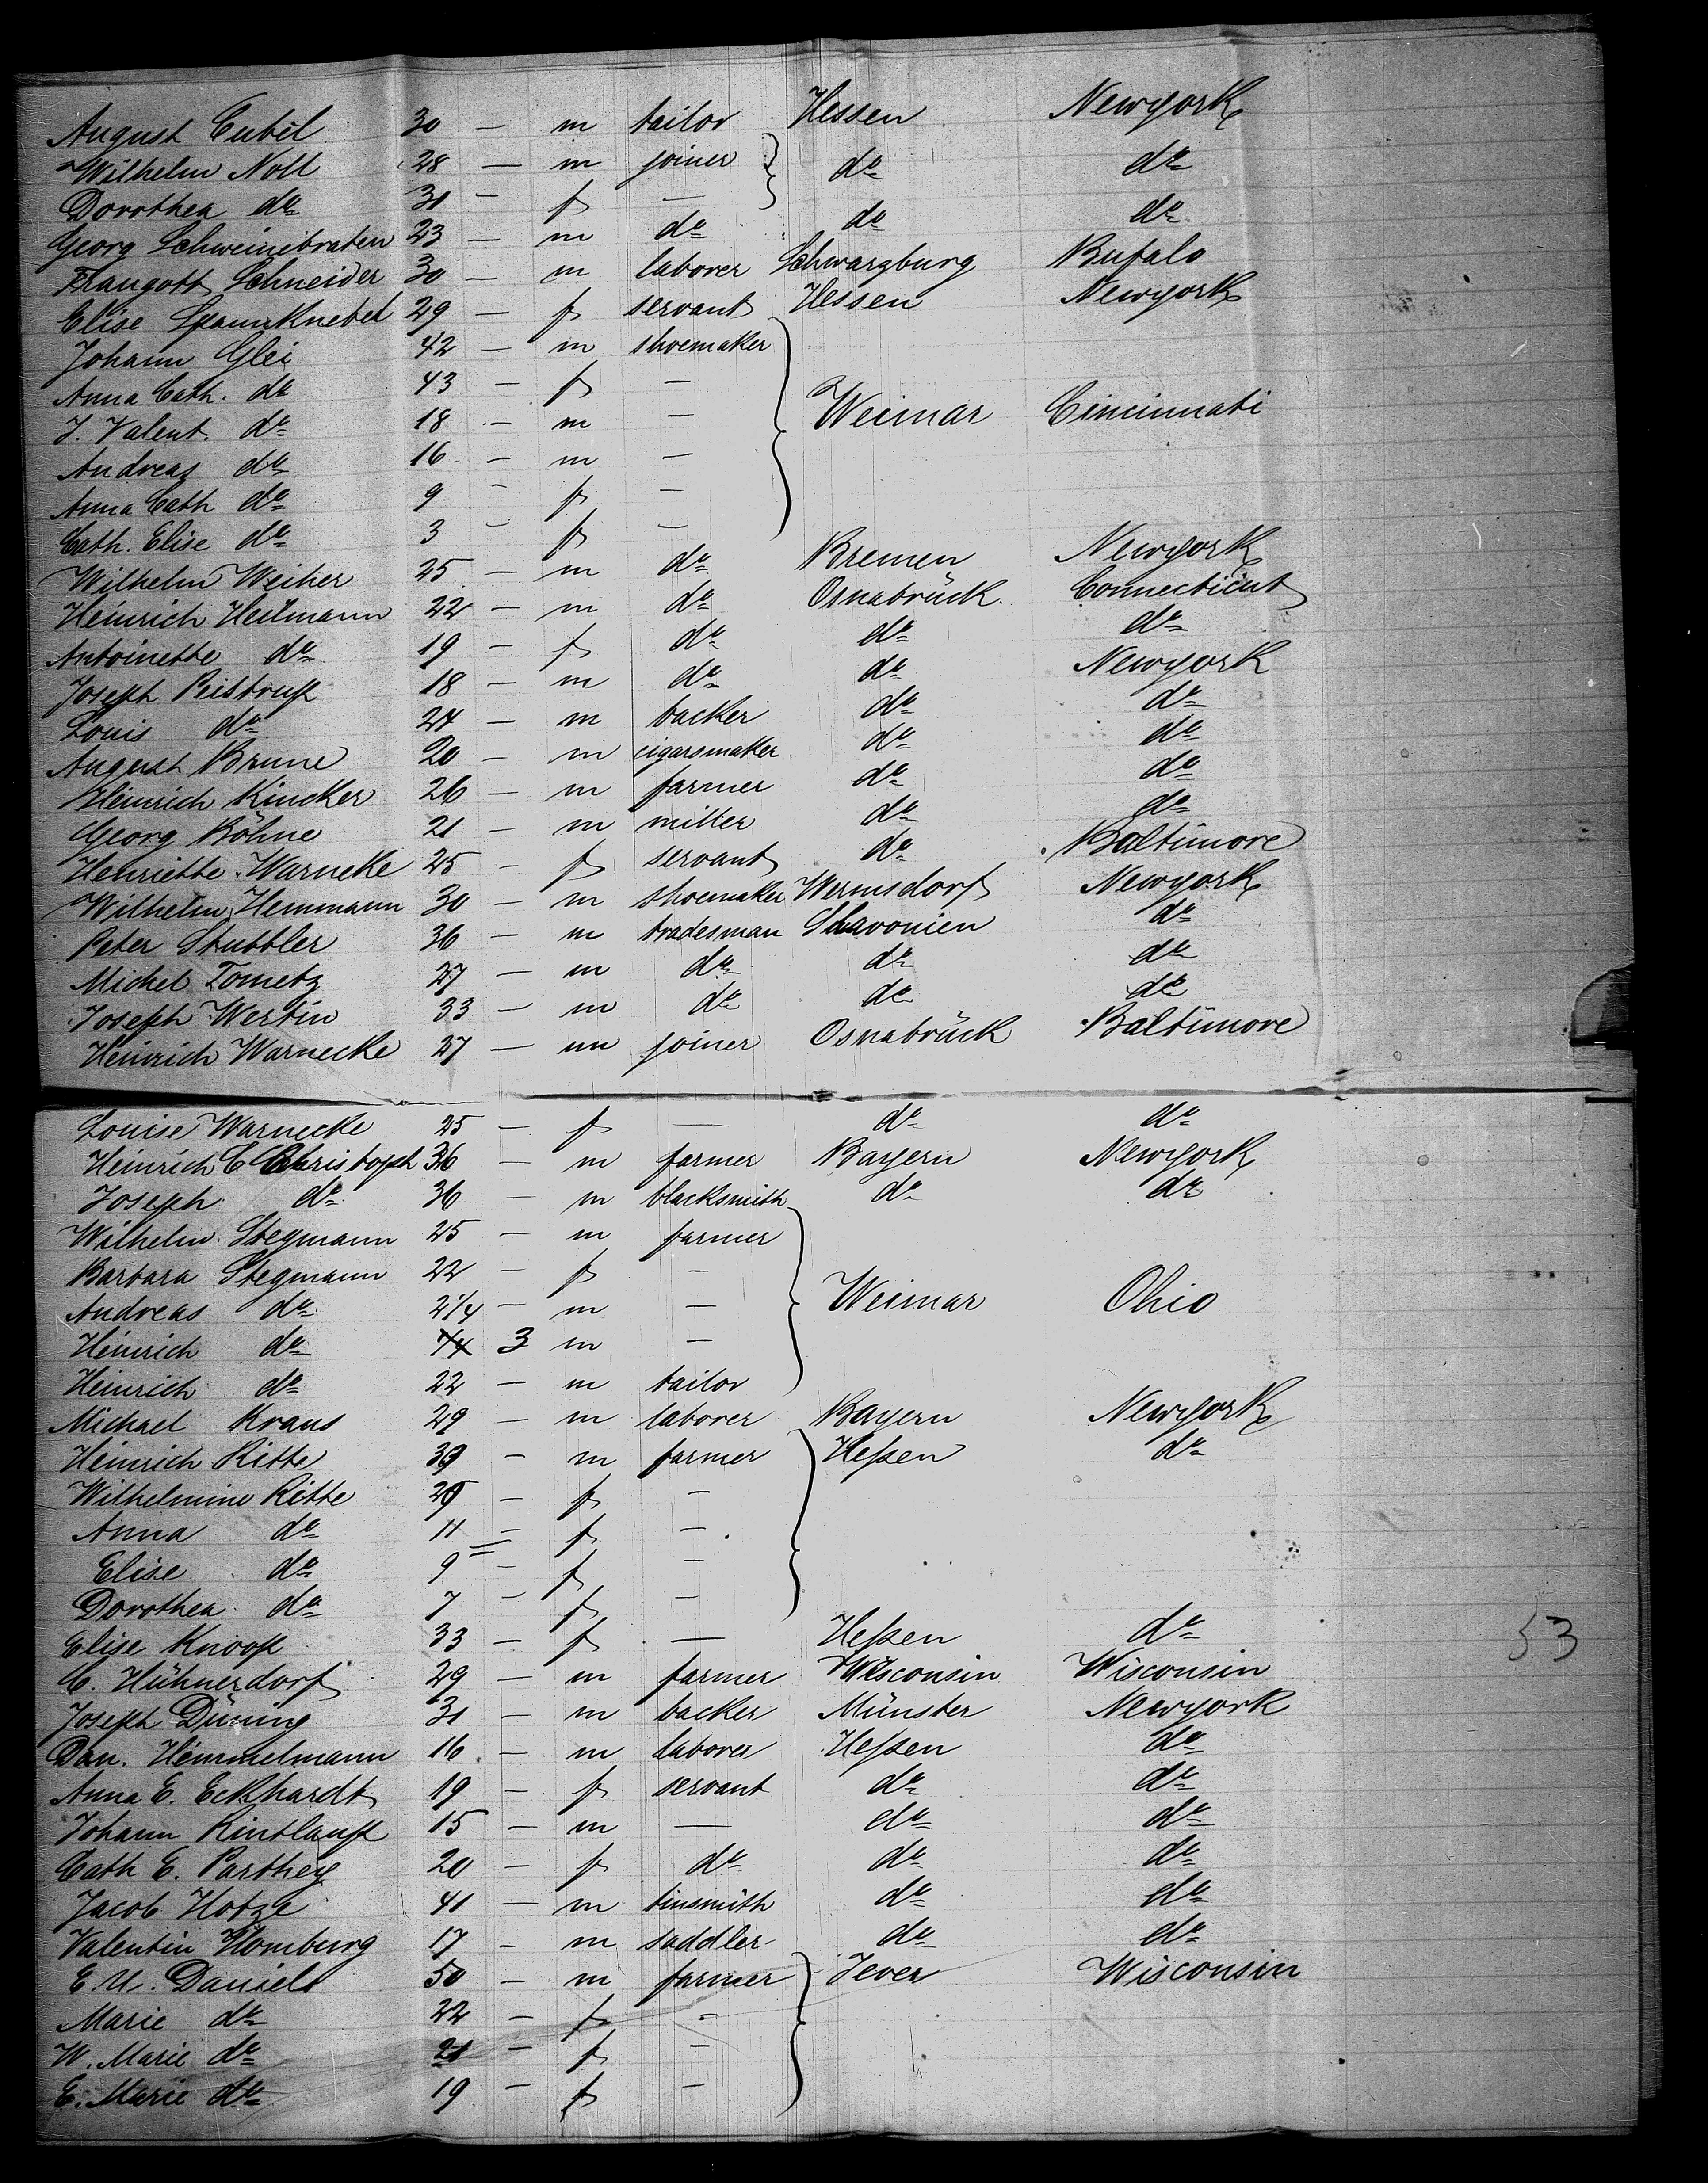 August Cubel 30 — m tailor Hessen Newyork
Wilhelm Noll 28 — m joiner do do
Dorothea do 31 — f —
Georg Schweinebraten 23 — m do do do
Traugott Schneider 30 — m laborer Schwarzburg Bufalo
Elise Spannknebel 29 — f servant Hessen Newyork
Johann Glei 42 — m shoemaker
Anna Cath. do 43 — f —
J. Valent. do 18 — m — Weimar Cincinnati
Andreas do 16 — m —
Anna Cath do 9 — f —
Cath. Elise do 3 — f —
Wilhelm Weiher 25 — m do Bremen Newyork
Heinrich Heilmann 22 — m do Osnabrück Connecticut
Antoinette do 19 — f do do do
Joseph Peistrup 18 — m do do Newyork
Louis do 24 — m backer do do
August Brune 20 — m cigarsmaker do do
Heinrich Kincker 26 — m farmer do do
Georg Böhne 21 — m miller do do
Henriette Warneke 25 — f servant do Baltimore
Wilhelm Hemmann 30 — m shoemaker Wermsdorf Newyork
Peter Stubbler 36 — m tradesman Slavonien do
Michel Tometz 27 — m do do do
Joseph Wertin 33 — m do do do
Heinrich Warnecke 27 — m joiner Osnabrück Baltimore
Louise Warnecke 25 — f — do do
Heinrich C Christoph 36 — m farmer Bayern Newyork
Joseph do 36 — m blacksmith do do
Wilhelm Stegmann 25 — m farmer
Barbara Stegmann 22 — f —
Andreas do 2 1/4 — m — Weimar Ohio
Heinrich do 3 m —
Heinrich do 22 — m tailor
Michael Kraus 29 — m laborer Bayern Newyork
Heinrich Ritte 39 — m farmer Heßen do
Wilhelmine Ritte — f —
Anna do 11 — f —
Elise do 9 — f —
Dorothea do 7 — f —
Elise Knoop 33 — f — Heßen do
C. Hühnerdorf 29 — m farmer Wisconsin Wisconsin
Joseph Düning 31 — m backer Münster Newyork
Dan. Hemmelmann 16 — m laborer Heßen do
Anna E. Eckhardt 19 — f servant do do
Johann Rintlauf 15 — m — do do
Cath E. Parthey 20 — f do do do
Jacob Hotze 41 — m tinsmith do do
Valentin Homburg 17 — m saddler do do
E. U. Daniels 50 — m farmer Jever Wisconsin
Marie do 22 — f —
W. Marie do 21 — f —
E. Marie do 19 — f —
53